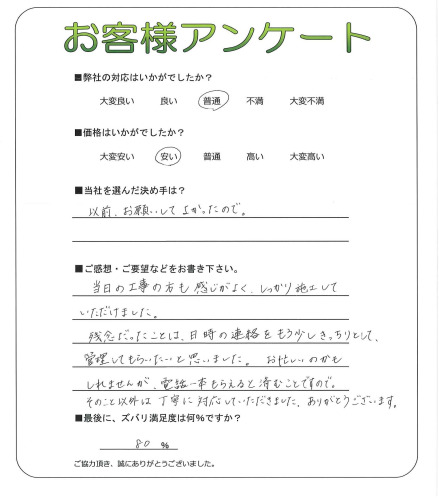 お客様アンケート
■弊社の対応はいかがでしたか?
大変良い 良い 普通 不満 大変不満
■価格はいかがでしたか?
大変安い 安い 普通 高い 大変高い
■当社を選んだ決め手は?
以前、お願いしてよかったので。
■ご感想・ご要望などをお書き下さい。
当日の工事の方も感じがよく、しっかり施工して
いただけました。
残念だったことは、日時の連絡をもう少しきっちりとして、
管理してもらいたいと思いました。 お忙しいのかも
しれませんが、電話一本もらえると済むことですので。
そのこと以外は丁寧に対応していただきました、ありがとうございます。
■最後に、ズバリ満足度は何%ですか?
80 %
ご協力頂き、誠にありがとうございました。